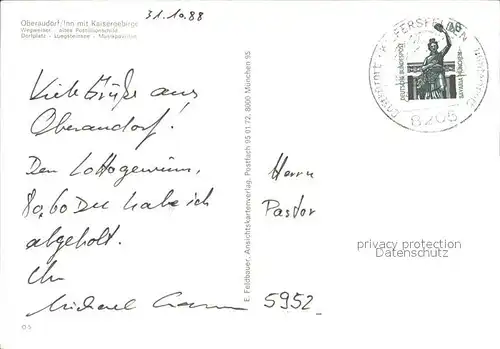 Oberaudorf/Inn mit Kaisergebirge
Wegweiser - altes Postillionschild
Dorfplatz - Luegsteinsee - Musikpavillon
31.10.88
Viele Grüße aus
Oberaudorf!
Den Lottogewinn,
80,60 DM habe ich
abgeholt.
Ihr
Michael
E. Feldbauer, Ansichtskartenverlag, Postfach 95 01 72, 8000 München 95
KIEFERSFELDEN
8205
DEUTSCHE BUNDESPOST
BAVARIA MÜNCHEN
Herrn
Pastor
5952
privacy protection
Datenschutz